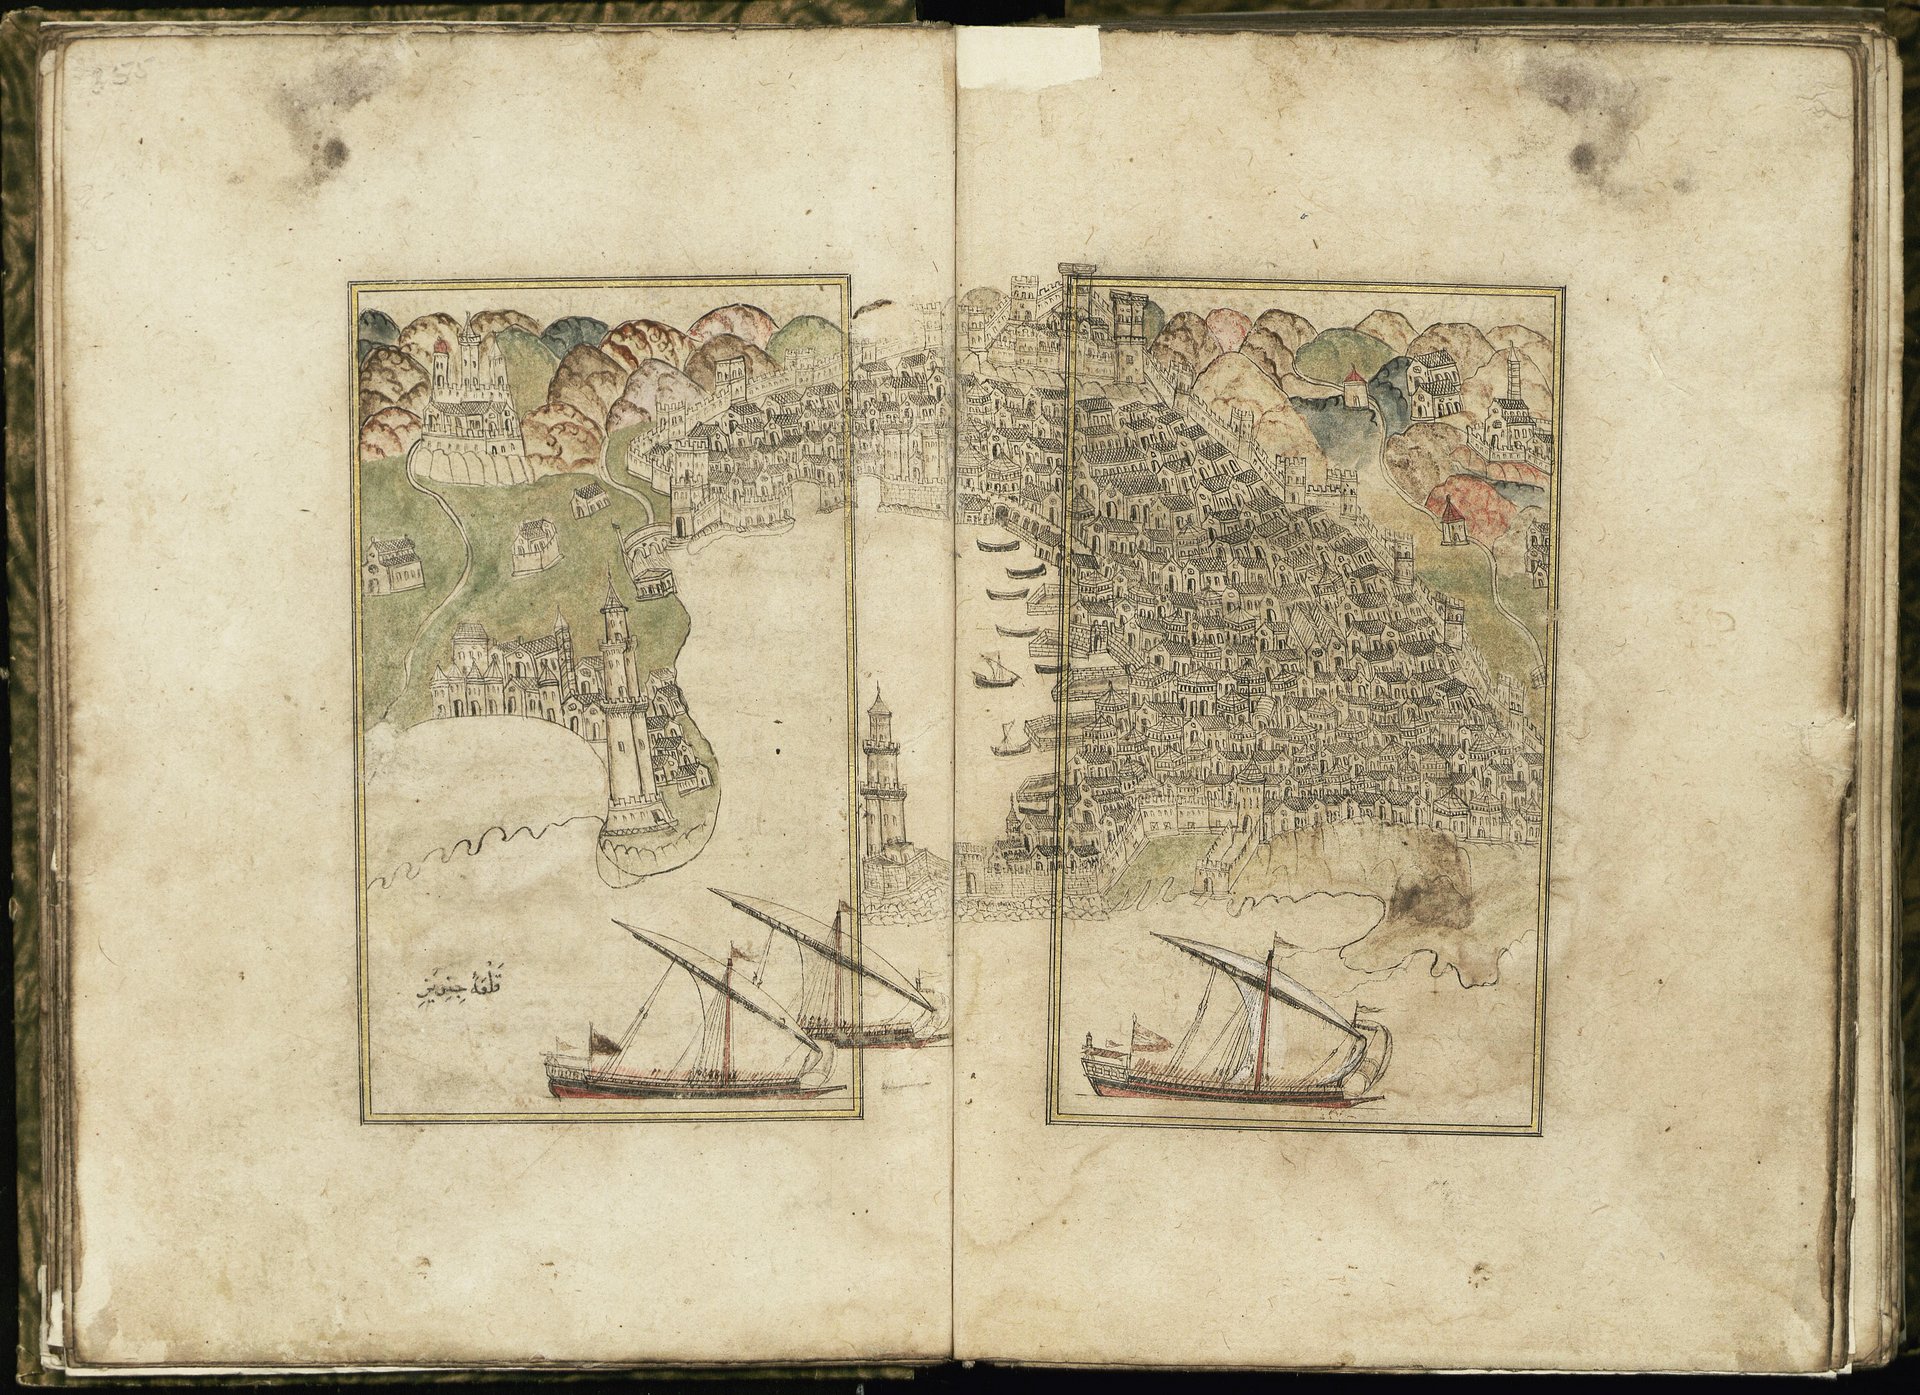 355
قَلْعَهٔ جِنِوِيزِ